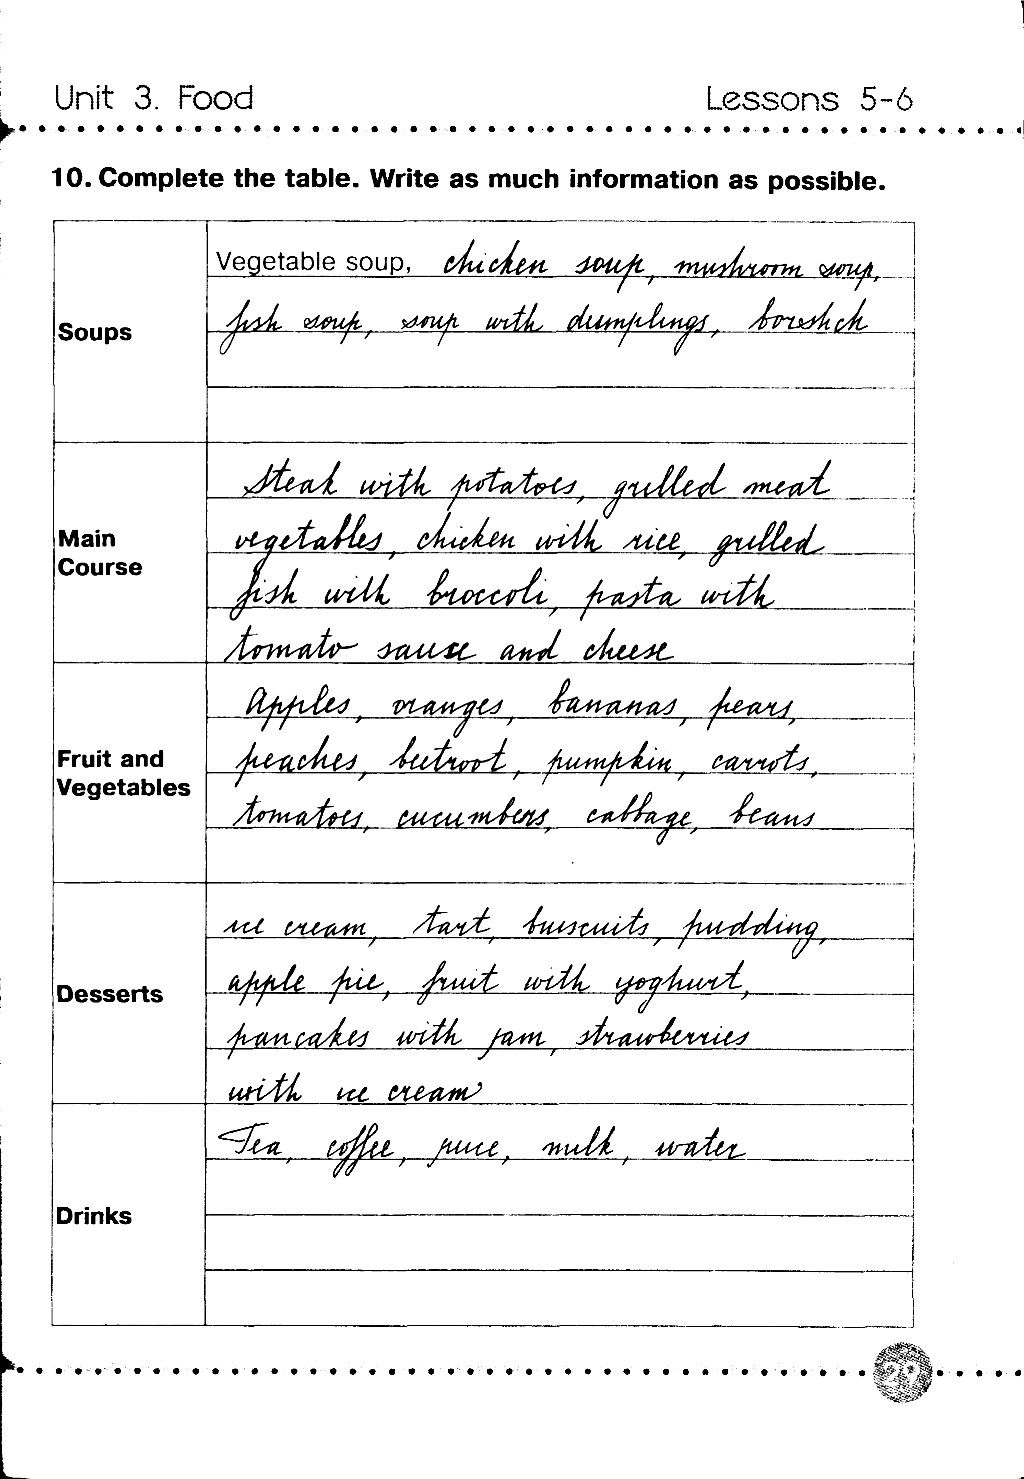 Unit 3. Food Lessons 5-6
10. Complete the table. Write as much information as possible.
Soups
Vegetable soup, chicken soup, mushroom soup,
fish soup, soup with dumplings, borshch
Main
Course
Steak with potatoes, grilled meat
vegetables, chicken with rice, grilled
fish with broccoli, pasta with
tomato sause and cheese
Fruit and
Vegetables
Apples, oranges, bananas, pears,
peaches, beetroot, pumpkin, carrots,
tomatoes, cucumbers, cabbage, beans
Desserts
ice cream, tart, buiscuits, pudding,
apple pie, fruit with yoghurt,
pancakes with jam, strawberries
with ice cream
Drinks
Tea, coffee, juice, milk, water
29